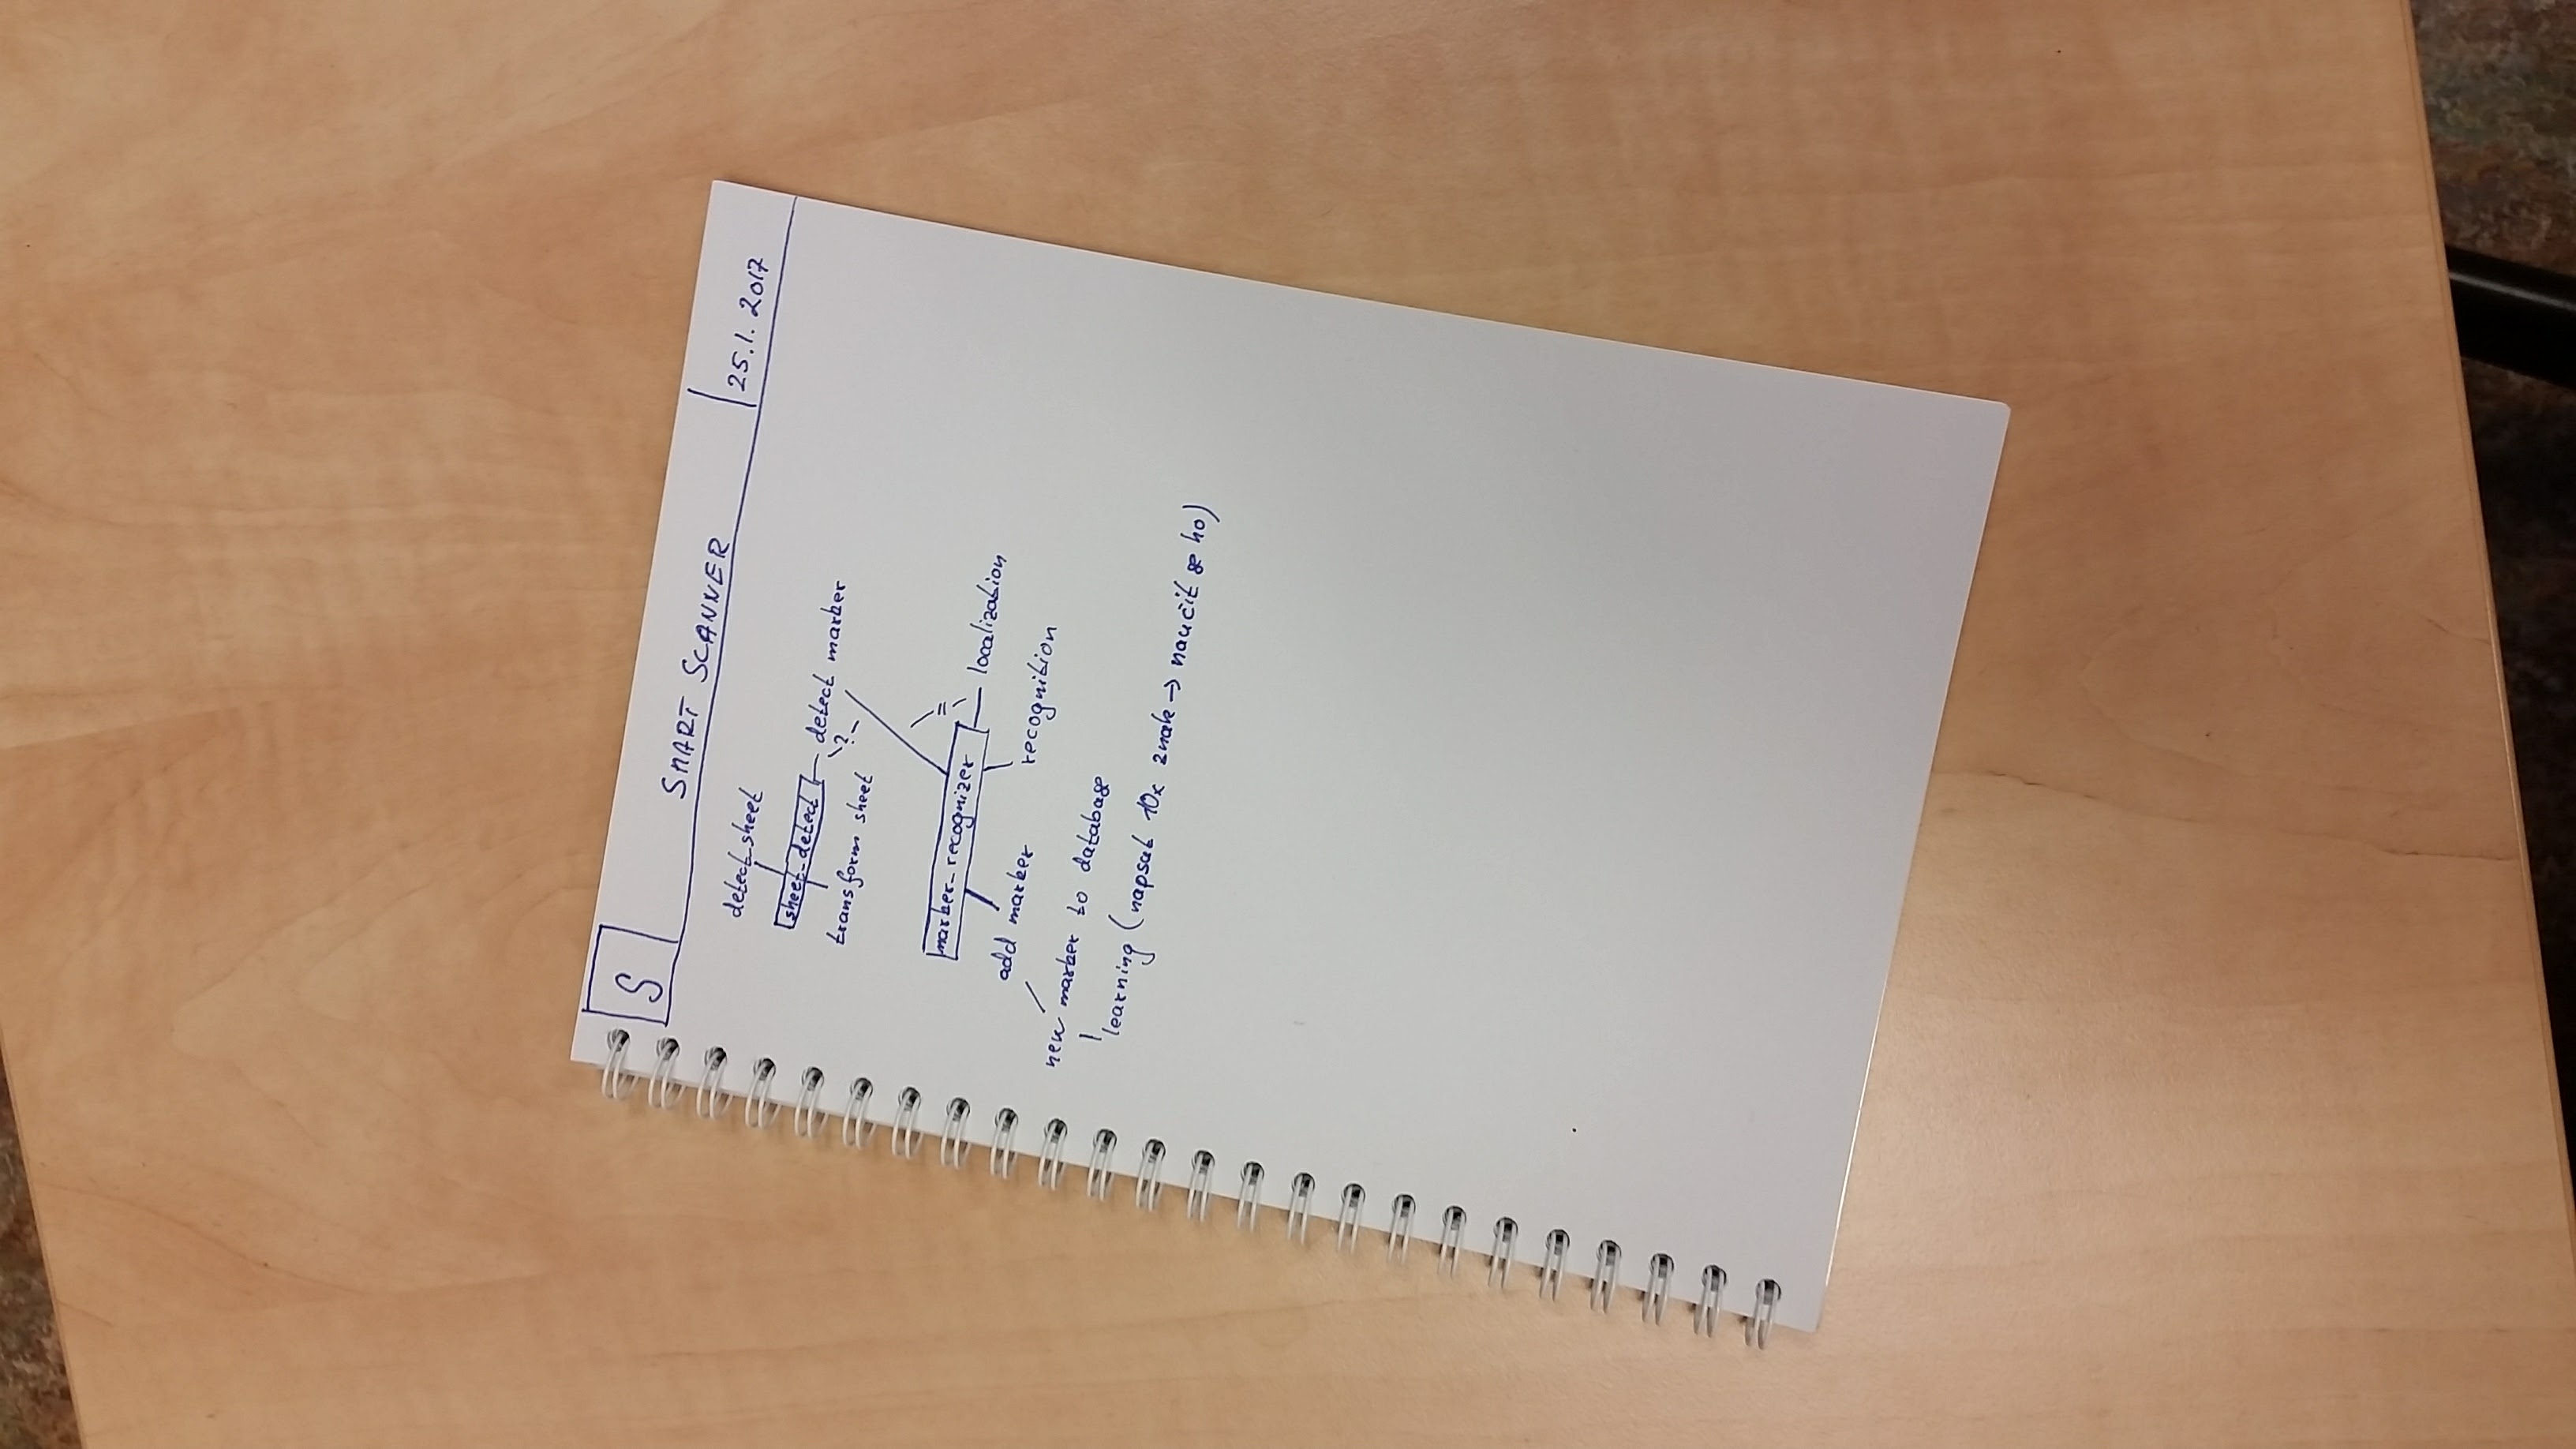 S
SMART SCANNER
25.1.2017
detect sheet
sheet_detect
detect marker
?
transform sheet
=
marker_recognizer
localization
add marker
recognition
new marker to database
learning (napsat 10x znak → naučit se ho)